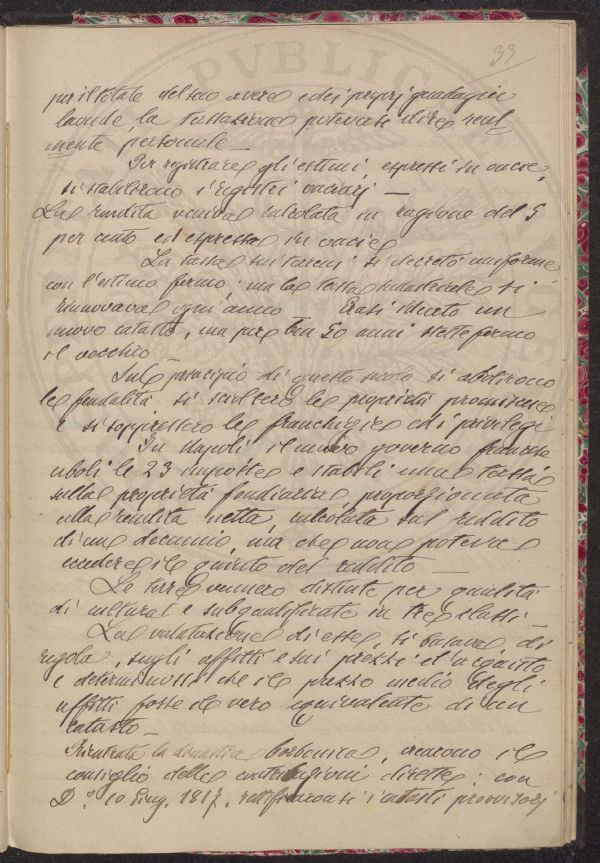 33
per il totale del suo avere e dei proprj guadagni
laonde la tassazione potevasi dire real-
mente personale —
Per registrare gli estimi, espressi in oncie,
si stabilirono i registri onciarj —
La rendita veniva calcolata in ragione del 5
per cento ed espressa in oncie
La tassa sui terreni si decretò uniforme
con l'estimo fermo; ma la tassa si
rinnovava ogni anno Erasi ideato un
nuovo catasto, ma per ben 50 anni stette fermo
il vecchio —
Sul principio di questo secolo si abolirono
le feudalità si sciolsero le proprietà promiscue
e si soppressero le franchigie ed i privilegi
In Napoli il nuovo governo francese
abolì le 23 imposte e stabilì una tassa
sulla proprietà fondiaria, proporzionata
alla rendita netta, calcolata sul reddito
di un decennio, ma che non poteva
eccedere il quinto del reddito —
Le terre vennero distinte per qualità
di cultura e subqualificate in tre classi —
La valutazione di esse, si basava, di
regola, sugli affitti e sui prezzi d'acquisto
e determinossi che il prezzo medio degli
affitti fosse il vero equivalente di un
catasto —
Rientrata la dinastia borbonica, crearono il
consiglio delle contribuzioni dirette; con
D.° 10 Giug. 1817, rettificaronsi i catasti provvisorj
PVBLIC